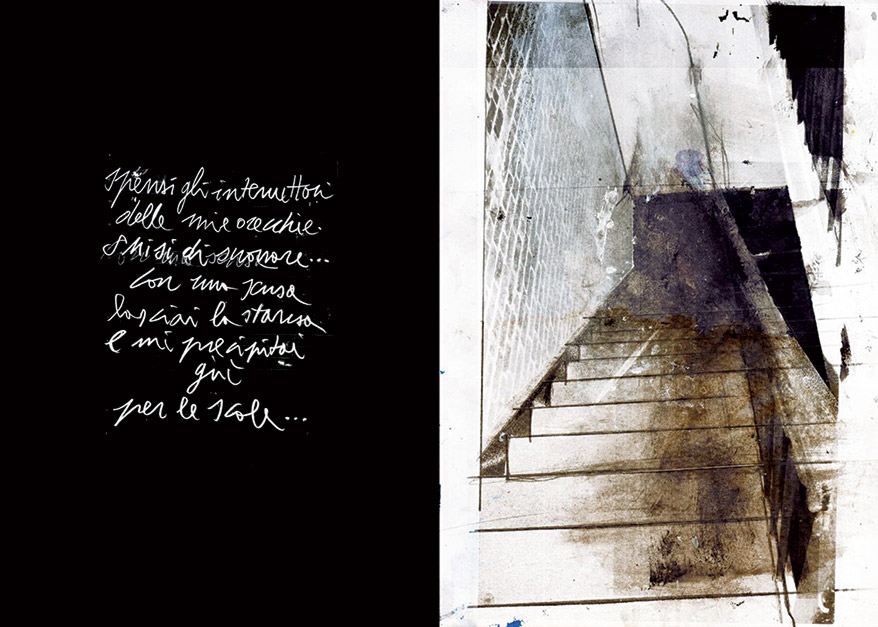 spensi gli interruttori
delle mie orecchie.
Smisi di suonare...
con una scusa
lasciai la stanza
e mi precipitai
giù
per le scale...